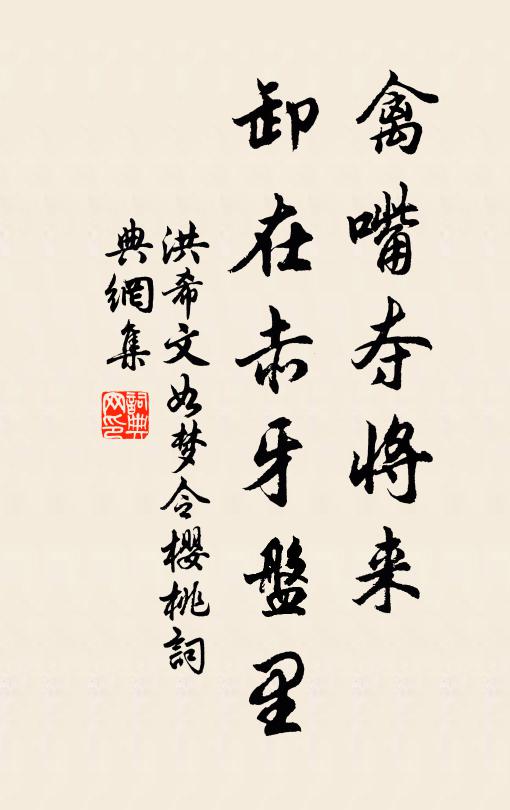 禽嘴夺将来
卸在赤牙盤里
洪希文如梦令櫻桃詞
典網集
詞典网印